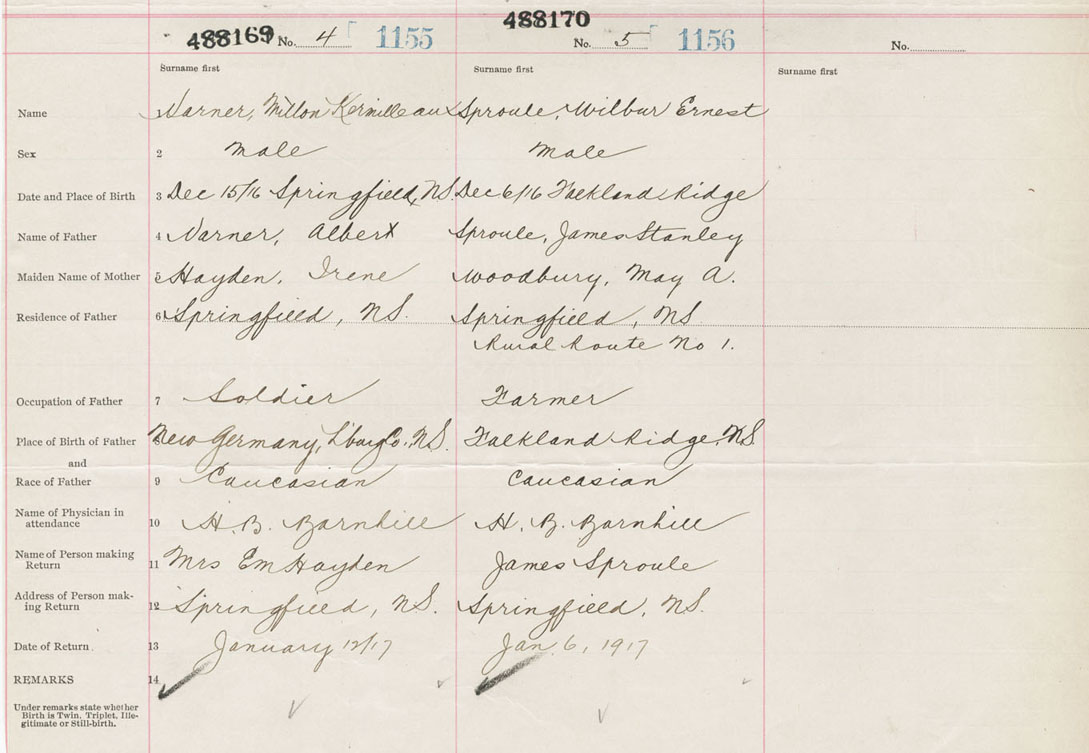 488169 No. 4 1155 488170 No. 5 1156 No.
Surname first Surname first Surname first
Name 1 Varner, Milton Sproule, Wilbur Ernest
Sex 2 Male Male
Date and Place of Birth 3 Dec 15/16 Springfield, N.S. Dec 6/16 Falkland Ridge
Name of Father 4 Varner, Albert Sproule, James Stanley
Maiden Name of Mother 5 Hayden, Irene Woodbury, May A.
Residence of Father 6 Springfield, NS. Springfield, NS
Rural Route No 1.
Occupation of Father 7 Soldier Farmer
Place of Birth of Father 8 New Germany, L'burg Co., N.S. Falkland Ridge, NS
and
Race of Father 9 Caucasian Caucasian
Name of Physician in
attendance 10 H. B. Barnhill H. B. Barnhill
Name of Person making
Return 11 Mrs Em Hayden James Sproule
Address of Person mak-
ing Return 12 Springfield, NS. Springfield, NS.
Date of Return 13 January 12/17 Jan. 6, 1917
REMARKS 14
Under remarks state whether
Birth is Twin, Triplet, Ille-
gitimate or Still-birth.